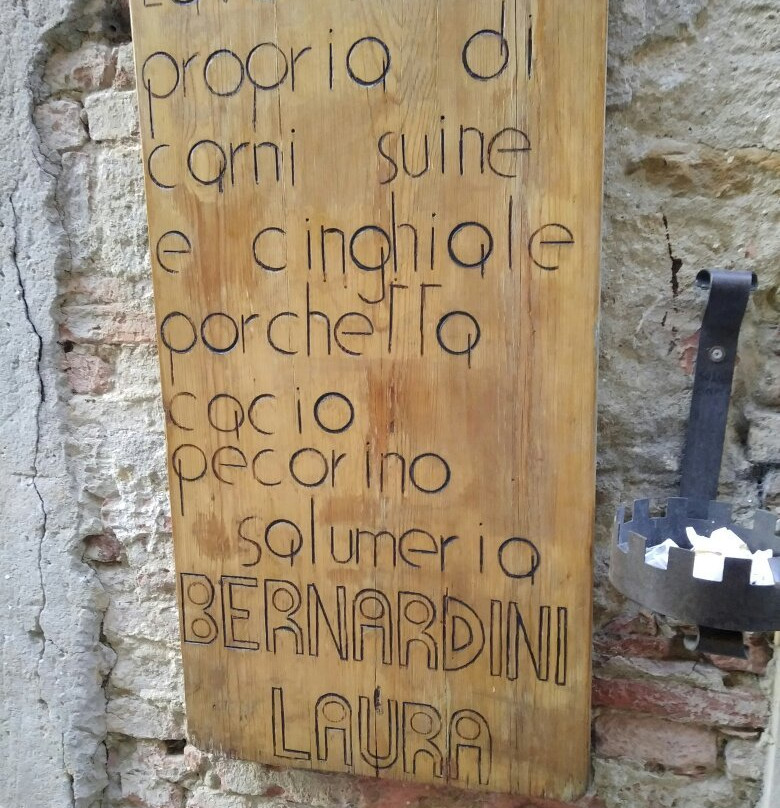 propria di
carni suine
e cinghiale
porchetta
cacio
pecorino
salumeria
BERNARDINI
LAURA